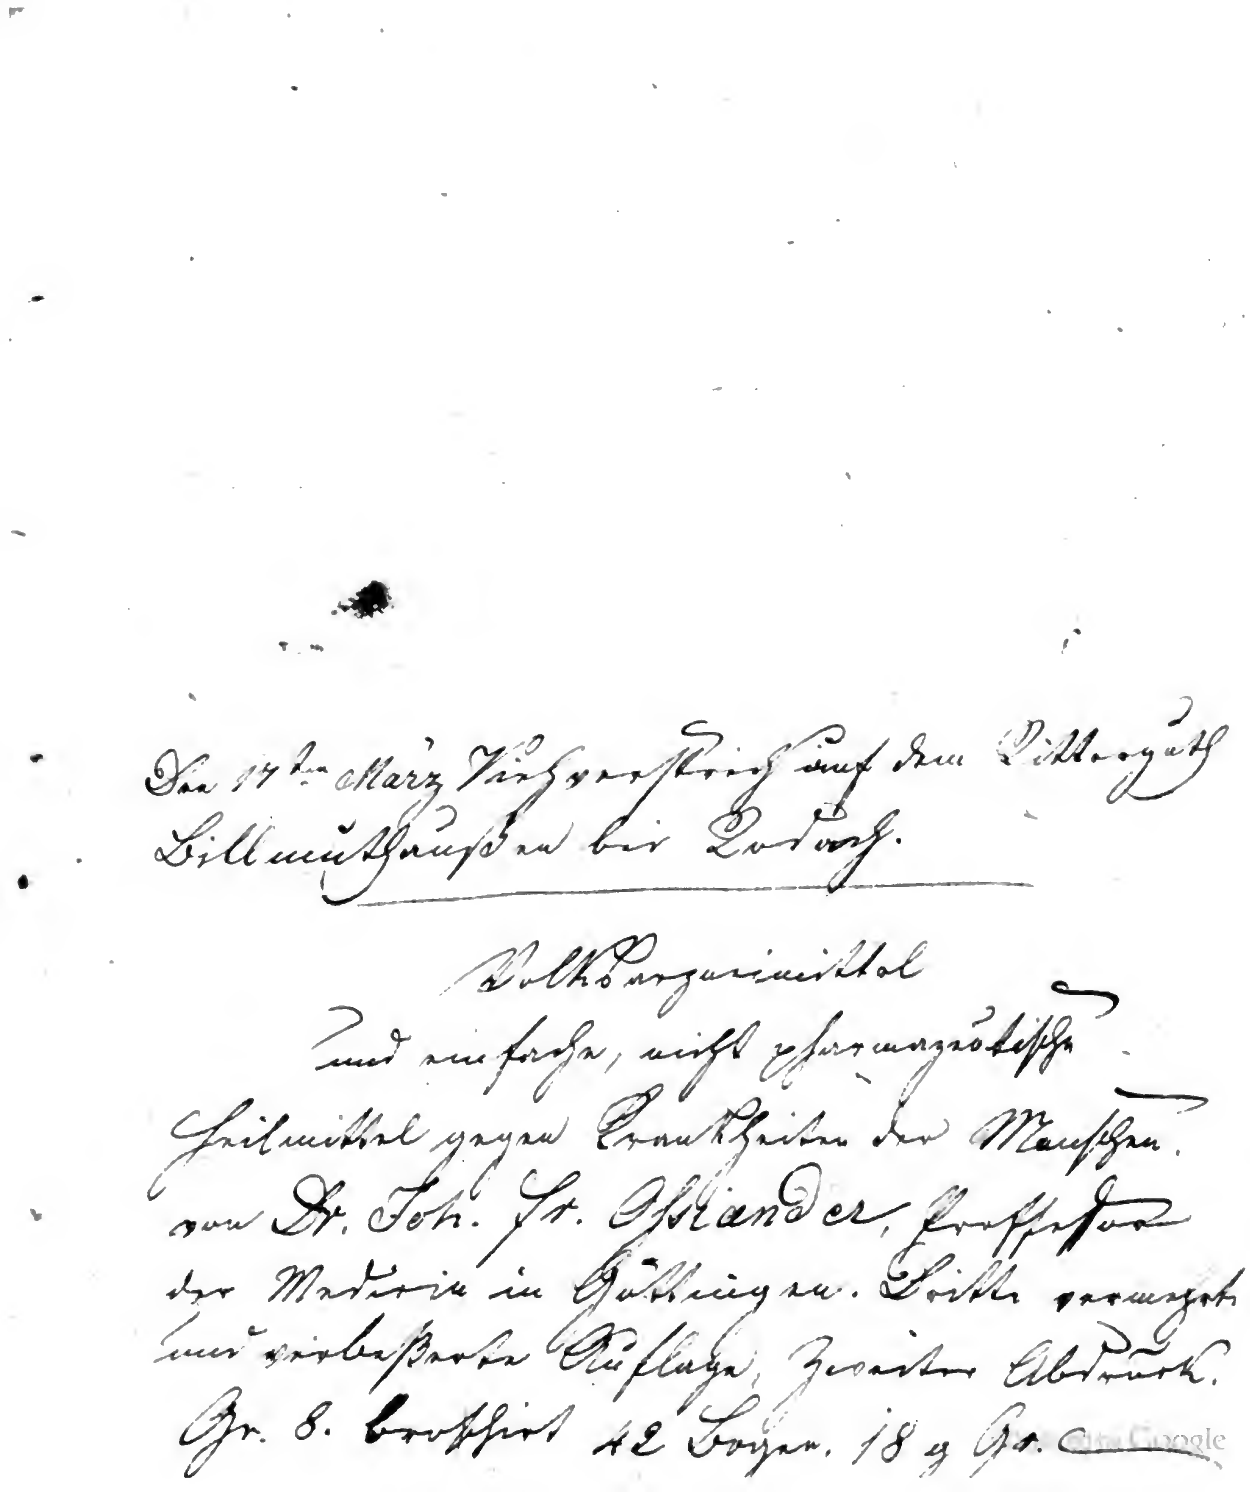 Den 17ten März Viehverstrich auf dem Ritterguth
Billmuthaußen bei Rodach.
Volksarzneimittel
und einfache, nicht pharmazeutische
Heilmittel gegen Krankheiten der Menschen.
von Dr. Joh. Fr. Ossiander, Professor
der Medecin in Göttingen. Dritte vermehrte
und verbeßerte Auflage, Zweiter Abdruck.
Gr. 8. broschirt 42 Bogen. 18 g Gr.
Google